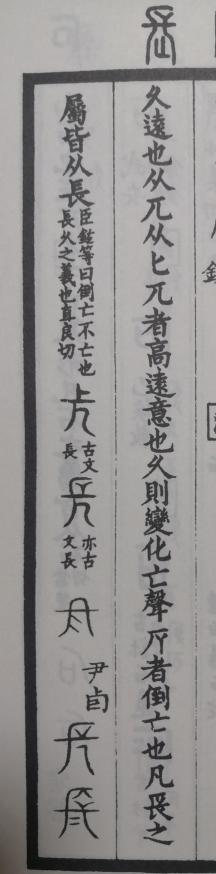 久遠也从兀从匕兀者高遠意也久則變化亡聲者倒亡也凡長之
屬皆从長
臣鉉等曰倒亡不亡也
長久之義也直良切
古文
長
亦古
文長
尹卣